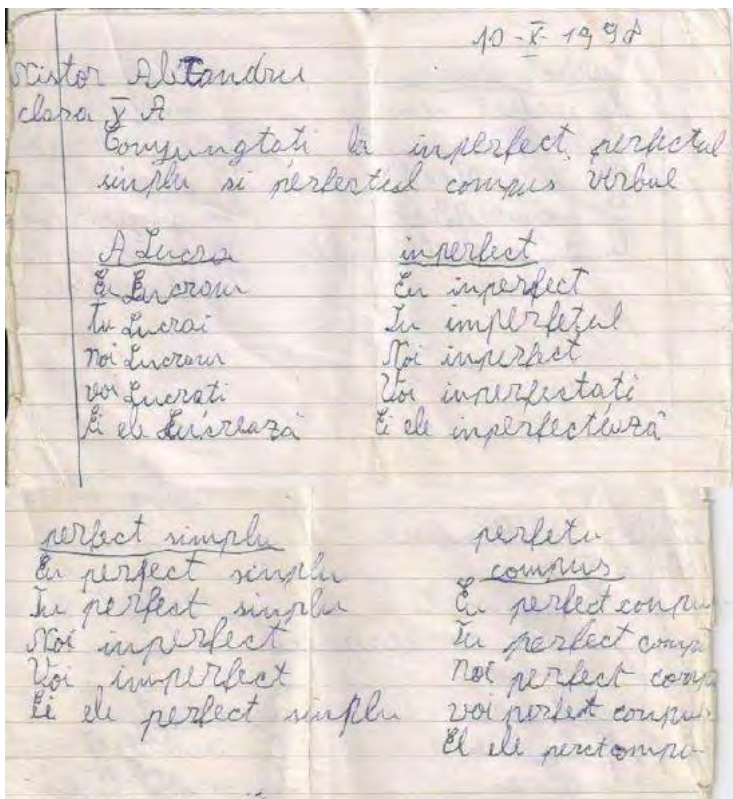 10-X-1998
Nistor Alexandru
clasa X A
Conjungtati la inperfect, perfectul
simplu si perfectul compus verbul
A Lucra
Eu Lucram
Tu Lucrai
Noi Lucram
voi Lucrati
Ei ele Lucrează
inperfect
Eu inperfect
Tu imperfetul
Noi inperfect
Voi inperfectati
Ei ele inperfectează
perfect simplu
Eu perfect simplu
Tu perfect simplu
Noi inperfect
Voi imperfect
Ei ele perfect simplu
perfetu
compus
Eu perfect conpu
Tu perfect comp
Noi perfect comp
voi perfect compu
El ele perctompu